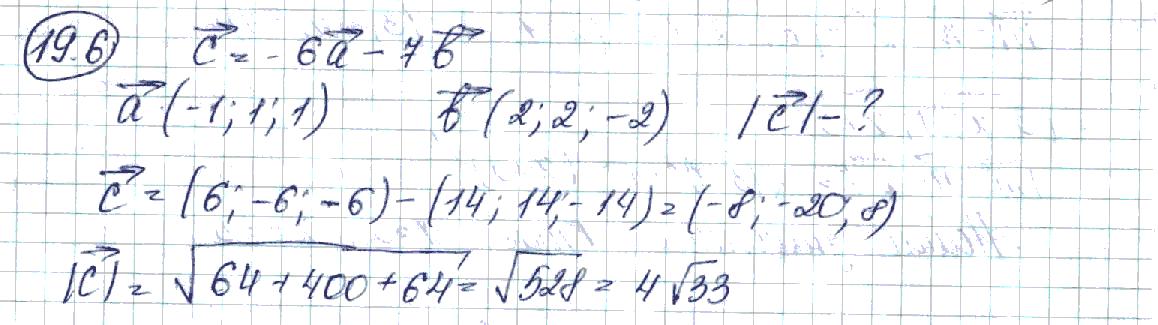 19.6 c⃗ = - 6a⃗ - 7b⃗
a⃗ (-1; 1; 1) b⃗ (2; 2; -2) |c⃗| - ?
c⃗ = (6; -6; -6) - (14; 14; -14) = (-8; -20; 8)
|c⃗| = √(64 + 400 + 64) = √528 = 4√33